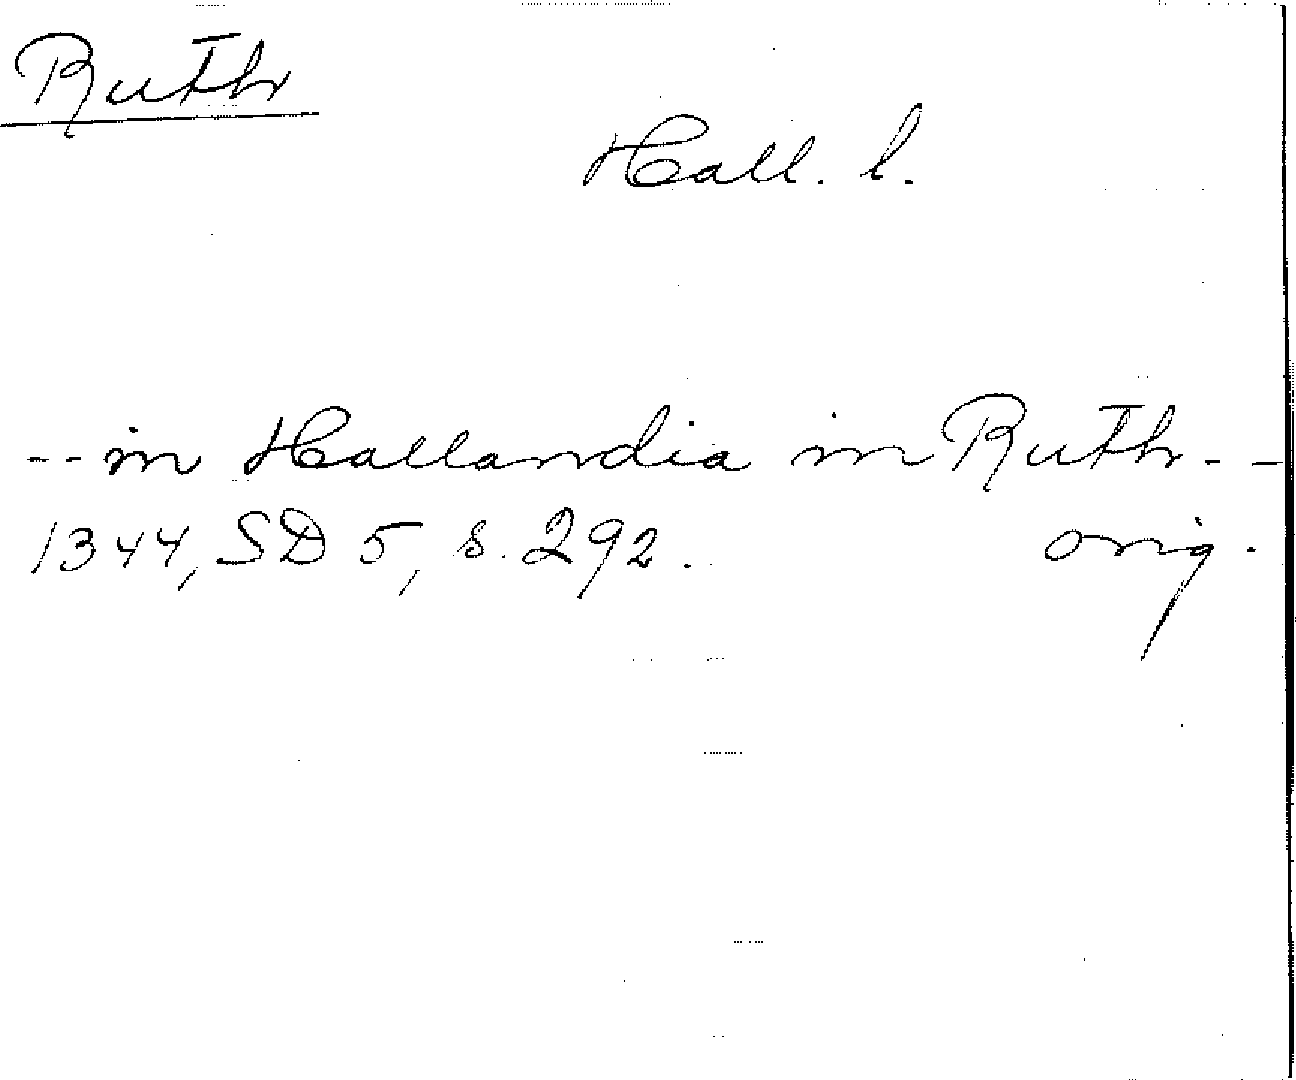 Ruth
Hall. l.
-- in Hallandia in Ruth - -
1344, SD 5, s. 292. orig.